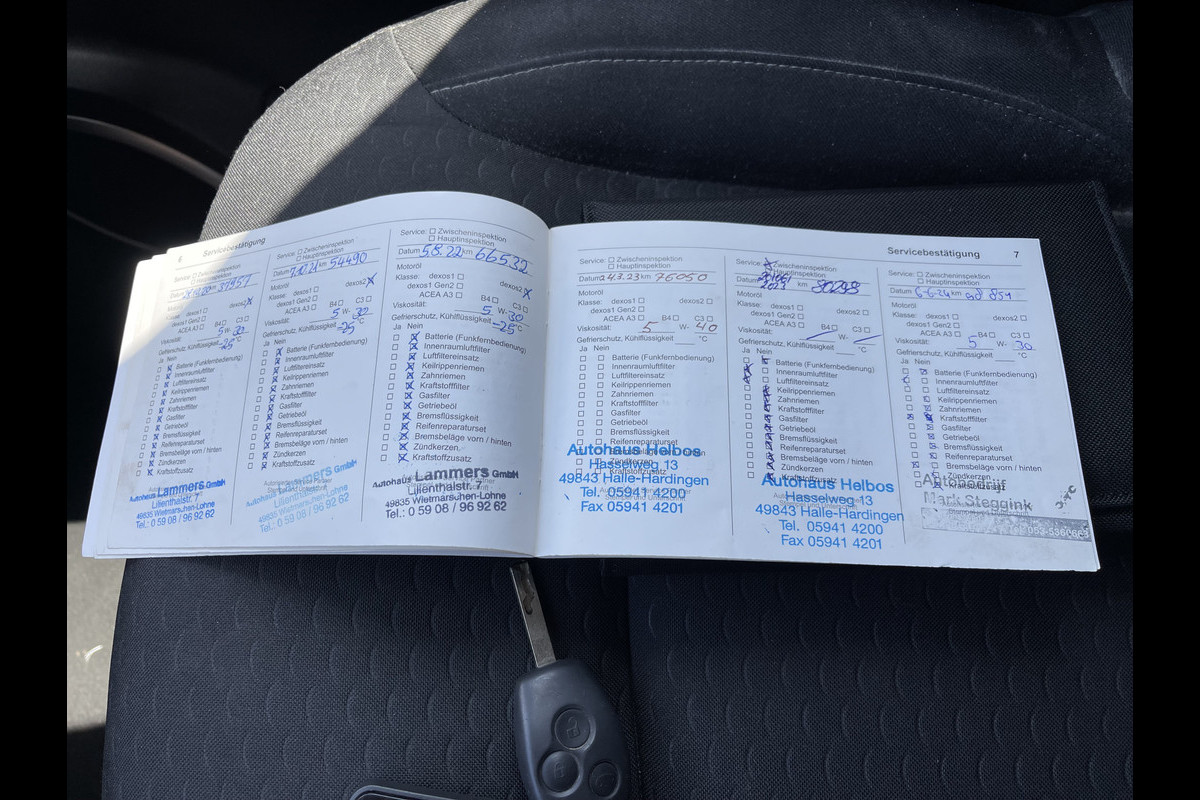 6 Servicebestätigung
Service: Zwischeninspektion
Hauptinspektion
Datum km 37957
dexos2 X
Klasse: dexos1
dexos1 Gen2
ACEA A3
Viskosität: 5 W- 30
Gefrierschutz, Kühlflüssigkeit -25 °C
Ja Nein
Batterie (Funkfernbedienung)
Innenraumluftfilter
Luftfiltereinsatz
Keilrippenriemen
Zahnriemen
Kraftstofffilter
Gasfilter
Getriebeöl
Bremsflüssigkeit
Reifenreparaturset
Bremsbeläge vorn / hinten
Zündkerzen
Autohaus Lammers GmbH
Lilienthalstr. 7
49835 Wietmarschen-Lohne
Tel.: 0 59 08 / 96 92 62
Service: Zwischeninspektion
Hauptinspektion
Datum km 54490
Motoröl
Klasse: dexos1 dexos2 X
dexos1 Gen2
ACEA A3 B4 C3
Viskosität: 5 W- 30
Gefrierschutz, Kühlflüssigkeit -25 °C
Ja Nein
Batterie (Funkfernbedienung)
Innenraumluftfilter
Luftfiltereinsatz
Keilrippenriemen
Zahnriemen
Kraftstofffilter
Gasfilter
Getriebeöl
Bremsflüssigkeit
Reifenreparaturset
Bremsbeläge vorn / hinten
Zündkerzen
Kraftstoffzusatz
Autohaus Lammers GmbH
Lilienthalstr. 7
49835 Wietmarschen-Lohne
Tel.: 0 59 08 / 96 92 62
Service: Zwischeninspektion
Hauptinspektion
Datum 5.8.22 km 66532
Motoröl
Klasse: dexos1 dexos2 X
dexos1 Gen2
ACEA A3 B4 C3
Viskosität: 5 W- 30
Gefrierschutz, Kühlflüssigkeit -25 °C
Ja Nein
Batterie (Funkfernbedienung)
Innenraumluftfilter
Luftfiltereinsatz
Keilrippenriemen
Zahnriemen
Kraftstofffilter
Gasfilter
Getriebeöl
Bremsflüssigkeit
Reifenreparaturset
Bremsbeläge vorn / hinten
Zündkerzen
Kraftstoffzusatz
Autohaus Lammers GmbH
Lilienthalstr. 7
49835 Wietmarschen-Lohne
Tel.: 0 59 08 / 96 92 62
Servicebestätigung 7
Service: Zwischeninspektion
Hauptinspektion
Datum 24.3.23 km 76050
Motoröl
Klasse: dexos1 dexos2
dexos1 Gen2
ACEA A3 B4 C3
Viskosität: 5 W- 40
Gefrierschutz, Kühlflüssigkeit °C
Ja Nein
Batterie (Funkfernbedienung)
Innenraumluftfilter
Luftfiltereinsatz
Keilrippenriemen
Zahnriemen
Kraftstofffilter
Gasfilter
Getriebeöl
Bremsflüssigkeit
Reifenreparaturset
Zündkerzen
Autohaus Helbos
Hasselweg 13
49843 Halle-Hardingen
Tel. 05941 4200
Fax 05941 4201
Service: Zwischeninspektion
Hauptinspektion
Datum 2023 km 80298
Motoröl
Klasse: dexos1 dexos2
dexos1 Gen2
ACEA A3 B4 C3
Viskosität: W-
Gefrierschutz, Kühlflüssigkeit °C
Ja Nein
Batterie (Funkfernbedienung)
Innenraumluftfilter
Luftfiltereinsatz
Keilrippenriemen
Zahnriemen
Kraftstofffilter
Gasfilter
Getriebeöl
Bremsflüssigkeit
Reifenreparaturset
Bremsbeläge vorn / hinten
Zündkerzen
Kraftstoffzusatz
Autohaus Helbos
Hasselweg 13
49843 Halle-Hardingen
Tel. 05941 4200
Fax 05941 4201
Service: Zwischeninspektion
Hauptinspektion
Datum 6-6-24 km 98 851
Motoröl
Klasse: dexos1 dexos2
dexos1 Gen2
ACEA A3 B4 C3
Viskosität: 5 W- 30
Gefrierschutz, Kühlflüssigkeit °C
Ja Nein
Batterie (Funkfernbedienung)
Innenraumluftfilter
Luftfiltereinsatz
Keilrippenriemen
Zahnriemen
Kraftstofffilter
Gasfilter
Getriebeöl
Bremsflüssigkeit
Reifenreparaturset
Bremsbeläge vorn / hinten
Zündkerzen
Autobedrijf
Mark Steggink
053-5360663